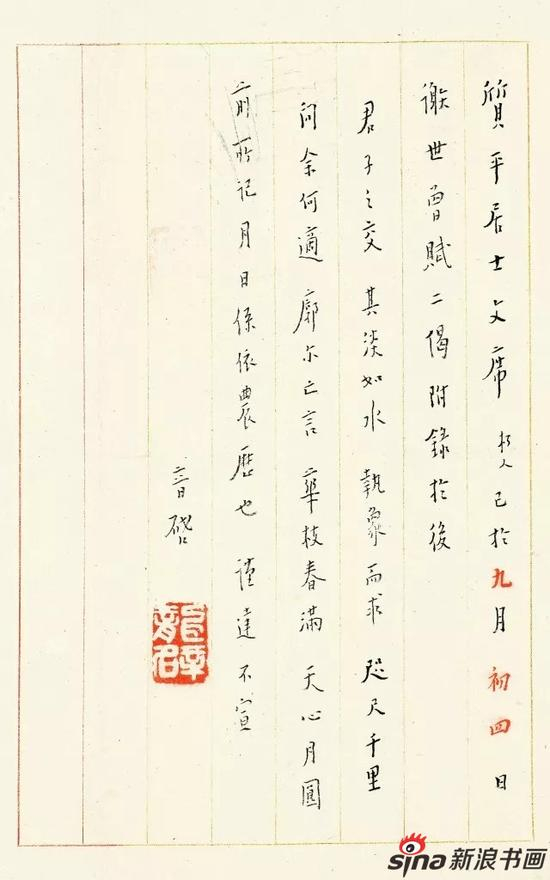 質平居士文席 朽人已於九月初四日
謝世曾賦二偈附錄於後
君子之交 其淡如水 執象而求 咫尺千里
問余何適 廓尔亡言 華枝春滿 天心月圓
前所記月日係依農歷也 謹達不宣
音啓
sina新浪书画